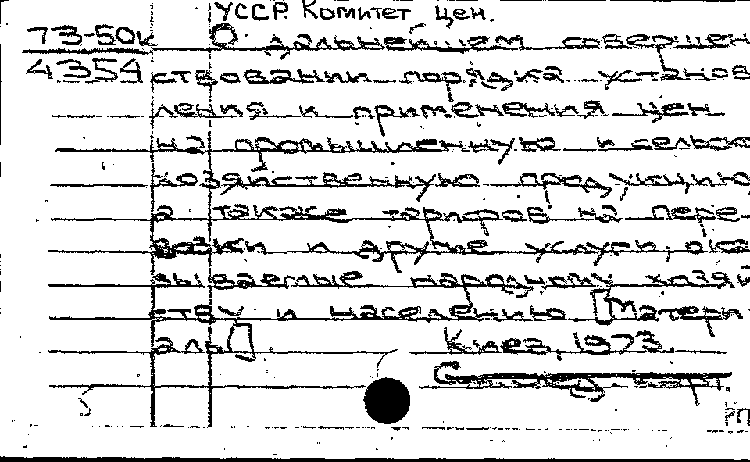 УССР. Комитет цен.
73-50к О дальнейшем совершен-
4354 ствовании порядка установ
ления и применения цен
на промышленную и сельско
хозяйственную продукцию
а также тарифов на пере-
возки и другие услуги, ока
зываемые народному хозяй
ству и населению. [Матери
алы] Киев, 1973.
РП